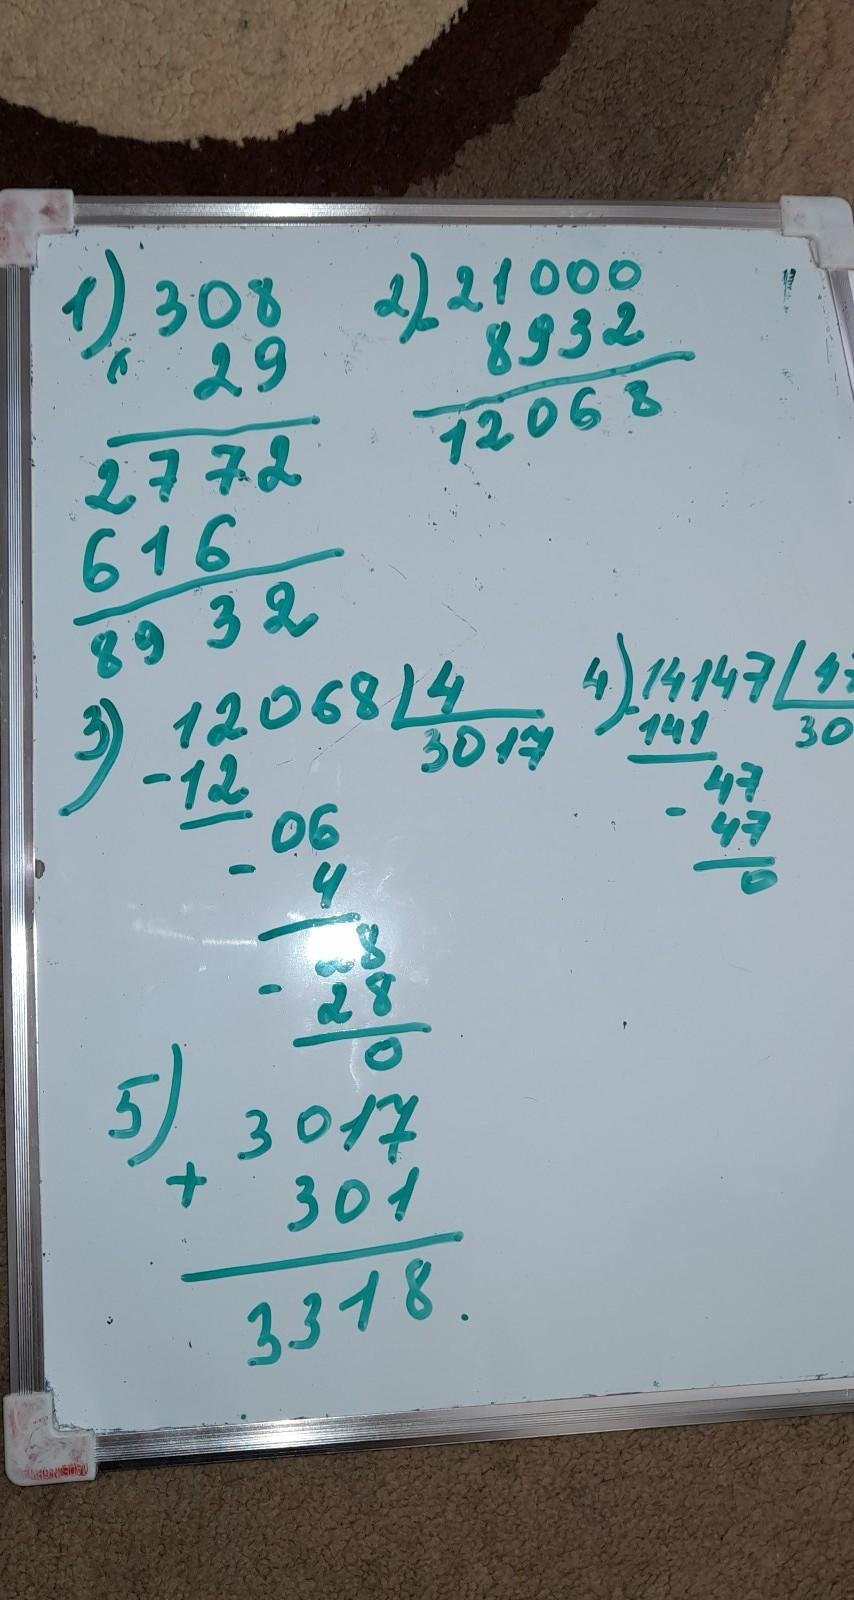 1) 308
× 29
2772
616
8932
2) 21000
- 8932
12068
3) 12068 | 4
- 12 3017
06
- 4
28
- 28
0
4) 14147 | 47
- 141 30
47
- 47
0
5) 3017
+ 301
3318.